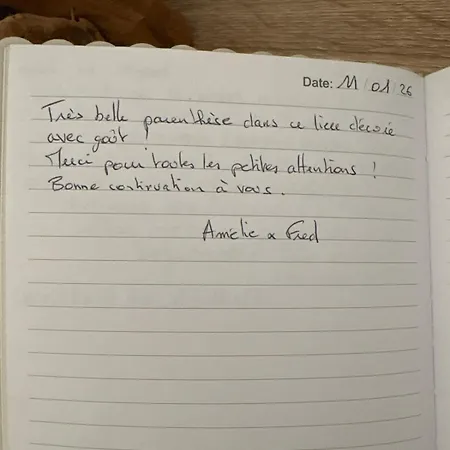 Date: 11/01/26
Très belle parenthèse dans ce lieu décoré
avec goût !
Merci pour toutes les petites attentions !
Bonne continuation à vous.
Amélie & Fred